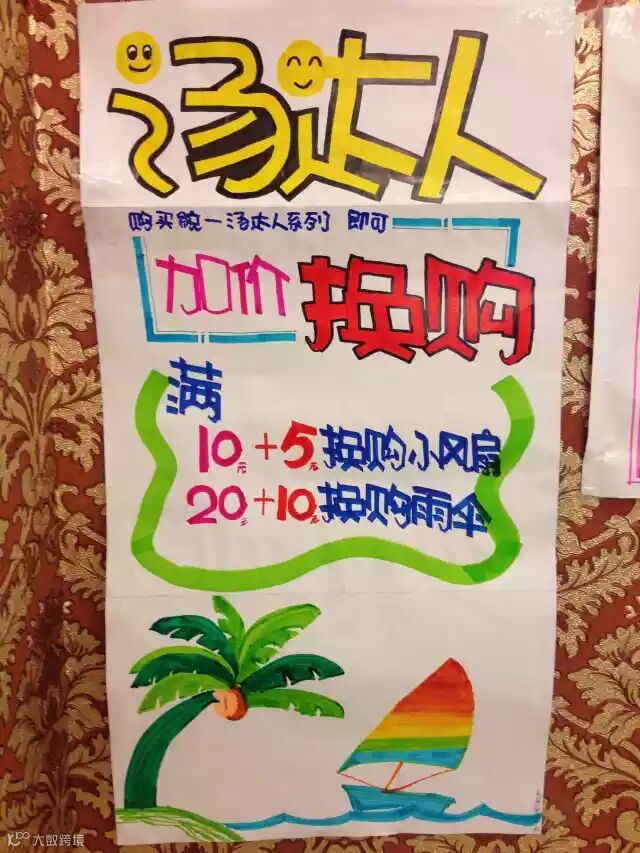 汤达人
购买统一汤达人系列 即可
加价换购
满
10元+5元换购小风扇
20元+10元换购雨伞
大数跨境